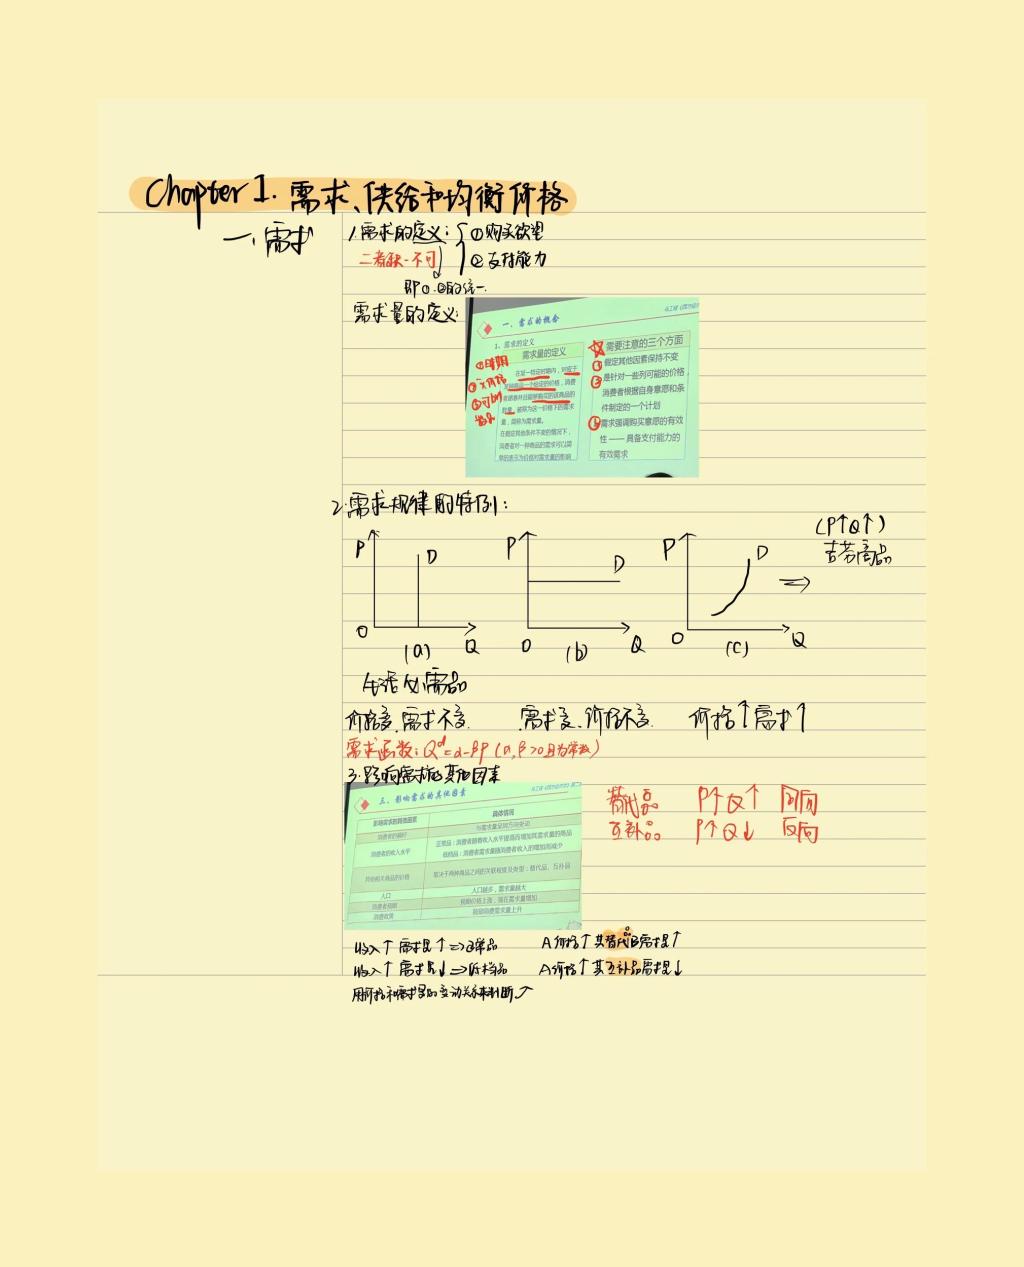 Chapter 1. 需求、供给和均衡价格
一、需求
1.需求的定义：
①购买欲望
②支付能力
二者缺一不可
即①.②的统一.
需求量的定义:
一、需求的概念
1、需求的定义
需求量的定义
在某一特定时期内，对应于
某种商品一个给定的价格，消费
者愿意并且能够购买的该商品的
数量，被称为这一价格下的需求
量，简称为需求量。
在假定其他条件不变的情况下，
消费者对一种商品的需求可以简
单的表示为价格对需求量的影响
①时期
②价格
数量
需要注意的三个方面
①假定其他因素保持不变
②是针对一些列可能的价格，
消费者根据自身意愿和条
件制定的一个计划
需求强调购买意愿的有效
性 —— 具备支付能力的
有效需求
2.需求规律的特例：
P D O Q (a)
P D O Q (b)
P D O Q (c)
(P↑Q↑)
吉芬商品
生活必需品
价格变,需求不变.
需求变,价格不变.
价格↑需求↑
需求函数: Qᵈ=α-βP (α,β>0且为常数)
3.影响需求的其他因素
三、影响需求的其他因素
影响需求的其他因素 具体情况
消费者的偏好 与需求量呈同方向变动
消费者的收入水平 正常品：消费者随着收入水平提高而增加其需求量的商品
低档品：消费者需求量随消费者收入的增加而减少
其他相关商品的价格 取决于两种商品之间的关联程度及类型：替代品、互补品
人口 人口越多，需求量越大
消费者预期 预期价格上涨，现在需求量增加
消费政策 鼓励消费需求量上升
替代品 P↑Q↑ 同向
互补品 P↑Q↓ 反向
收入↑ 需求量↑ ⇒正常品
A价格↑其替代品需求量↑
收入↑ 需求量↓ ⇒低档品
A价格↑其互补品需求量↓
用价格和需求量的变动关系来判断↗